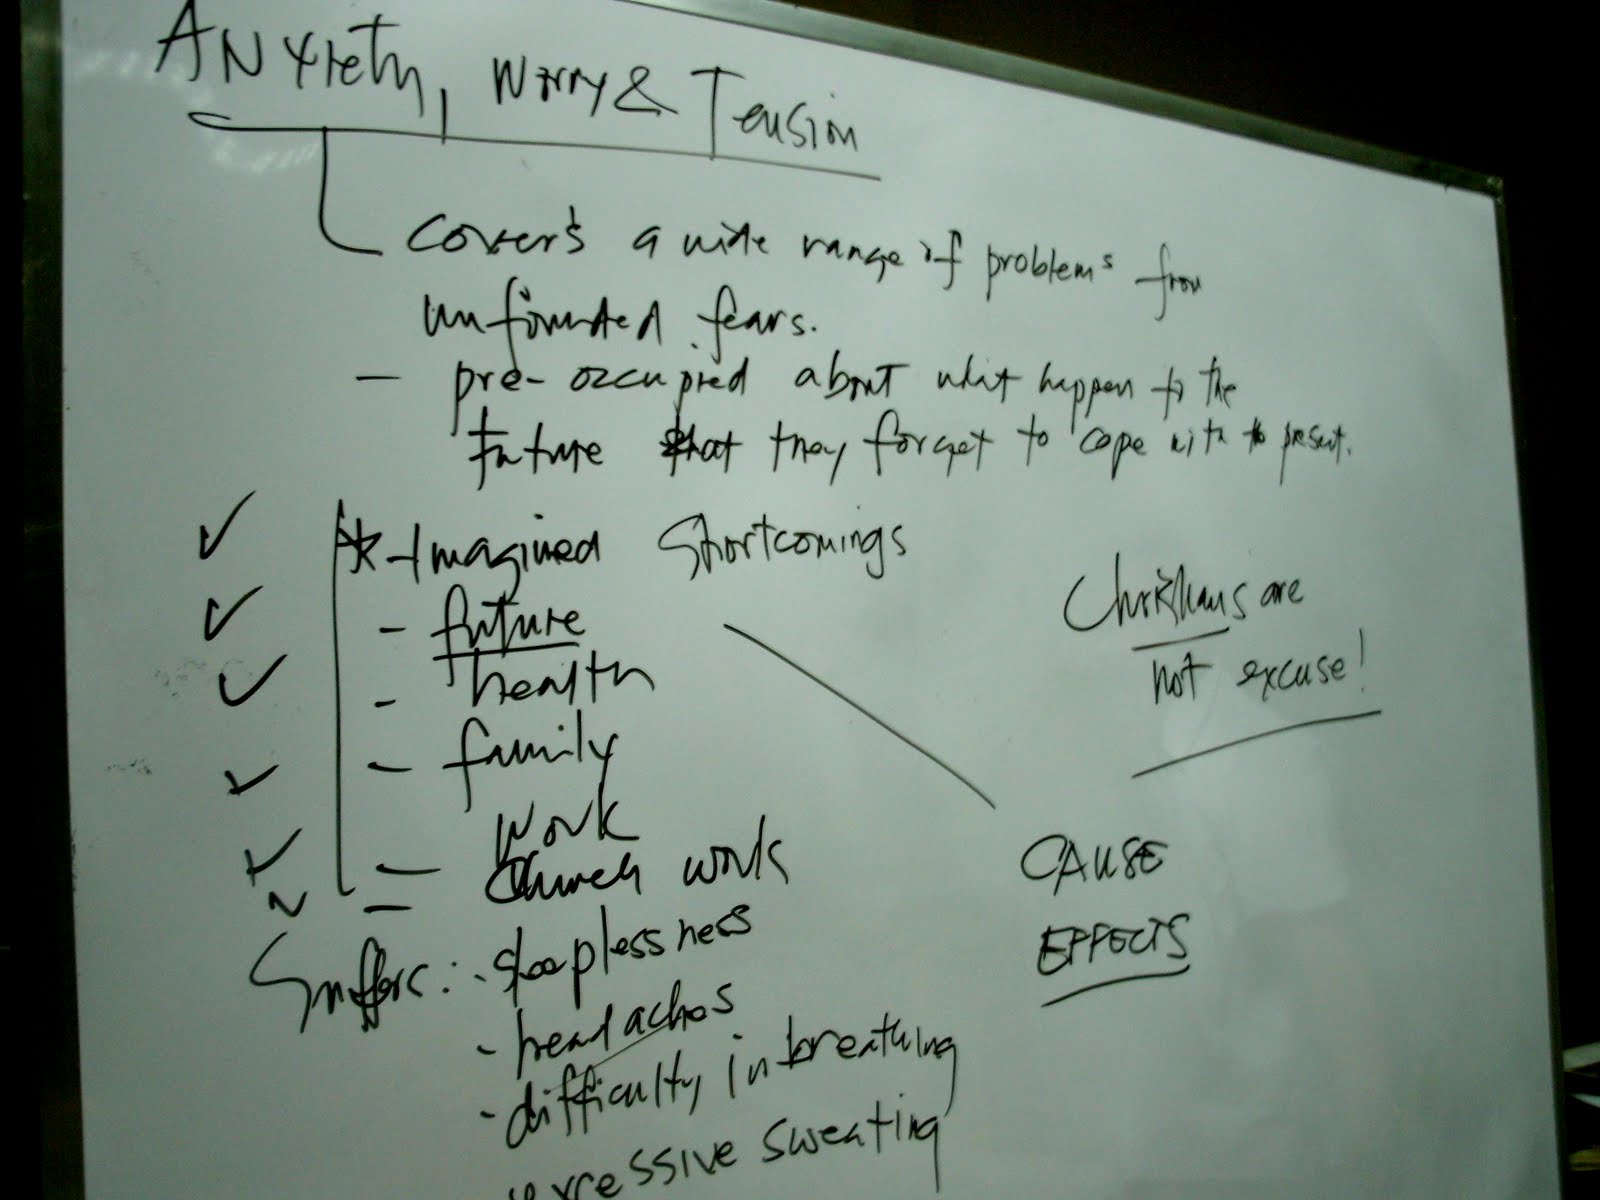 ANxiety, Worry & Tension
Covers a wide range of problems from
unfounded fears.
- pre-occupied about what happen to the
future that they forget to cope with to present.
* - Imagined Shortcomings
- future
- health
- family
Work
- Church work
Suffers: - sleeplessness
- headaches
- difficulty in breathing
excessive sweating
Christians are
not excuse!
CAUSE
EFFECTS